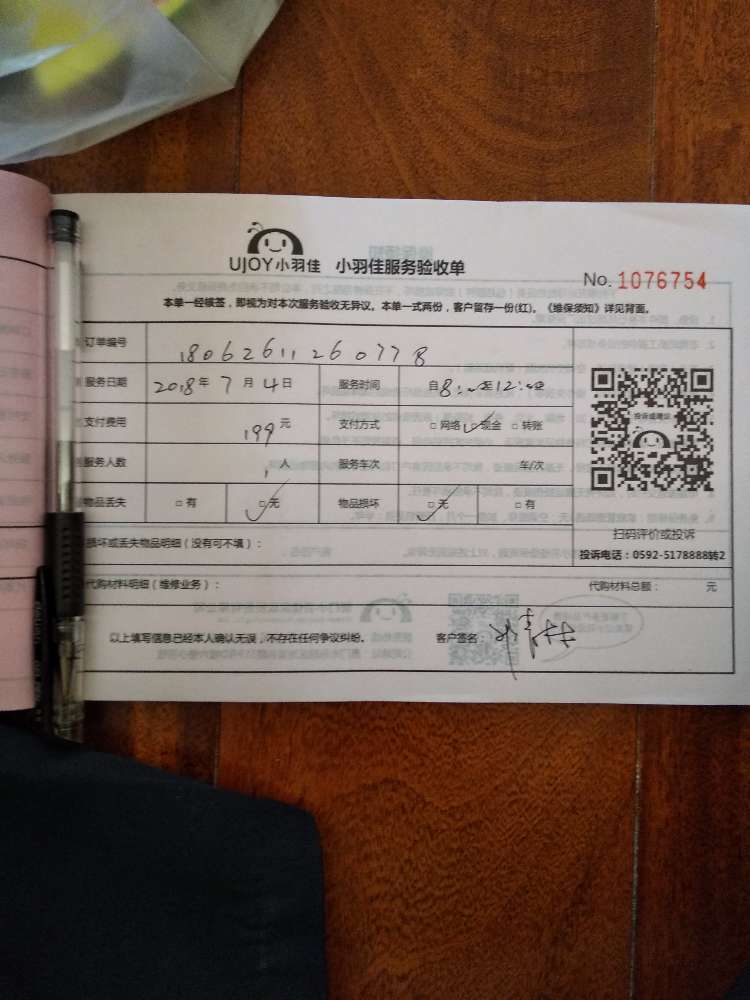 UJOY小羽佳 小羽佳服务验收单
No. 1076754
本单一经核签，即视为对本次服务验收无异议。本单一式两份，客户留存一份(红)。《维保须知》详见背面。
订单编号 18062611260778
服务日期 2018年 7月 4日 服务时间 自8:00至12:00
支付费用 199元 支付方式 □网络 □现金 □转账
服务人数 1人 服务车次 车/次
物品丢失 □有 □无 物品损坏 □无 □有
投诉或建议
扫码评价或投诉
投诉电话：0592-5178888转2
损坏或丢失物品明细（没有可不填）：
代购材料明细（维修业务）： 代购材料总额： 元
以上填写信息已经本人确认无误，不存在任何争议纠纷。 客户签名：